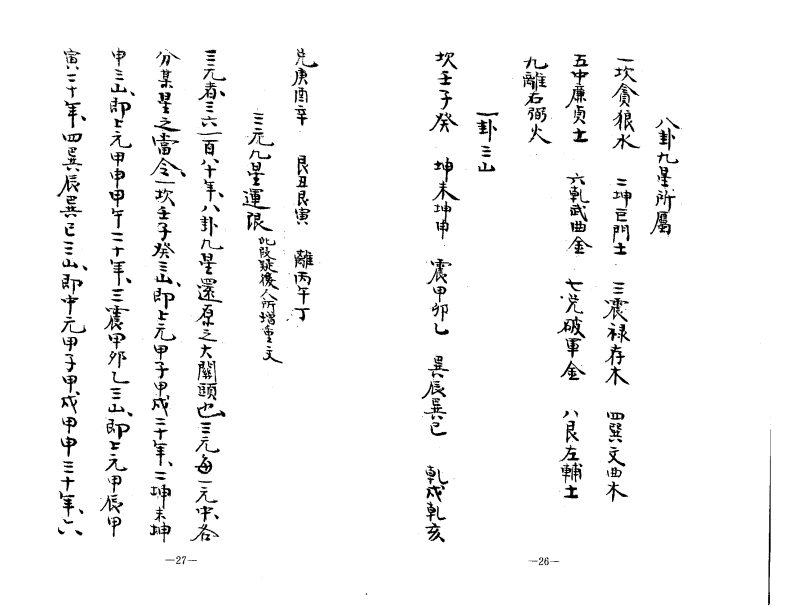 八卦九星所屬
一坎貪狼水 二坤巨門土 三震祿存木 四巽文曲木
五中廉貞土 六乾武曲金 七兌破軍金 八艮左輔土
九離右弼火
一卦三山
坎壬子癸 坤未坤申 震甲卯乙 巽辰巽巳 乾戌乾亥
—26—
兌庚酉辛 艮丑艮寅 離丙午丁
三元九星運限 此段疑後人所增重文
三元者、三六一百八十年、八卦九星還原之大關頭也、三元每一元中、各
分某星之當令、一坎壬子癸三山、即上元甲子甲戌二十年、二坤未坤
申三山、即上元甲申甲午二十年、三震甲卯乙三山、即上元甲辰甲
寅二十年、四巽辰巽巳三山、即中元甲子甲戌甲申三十年、六
—27—